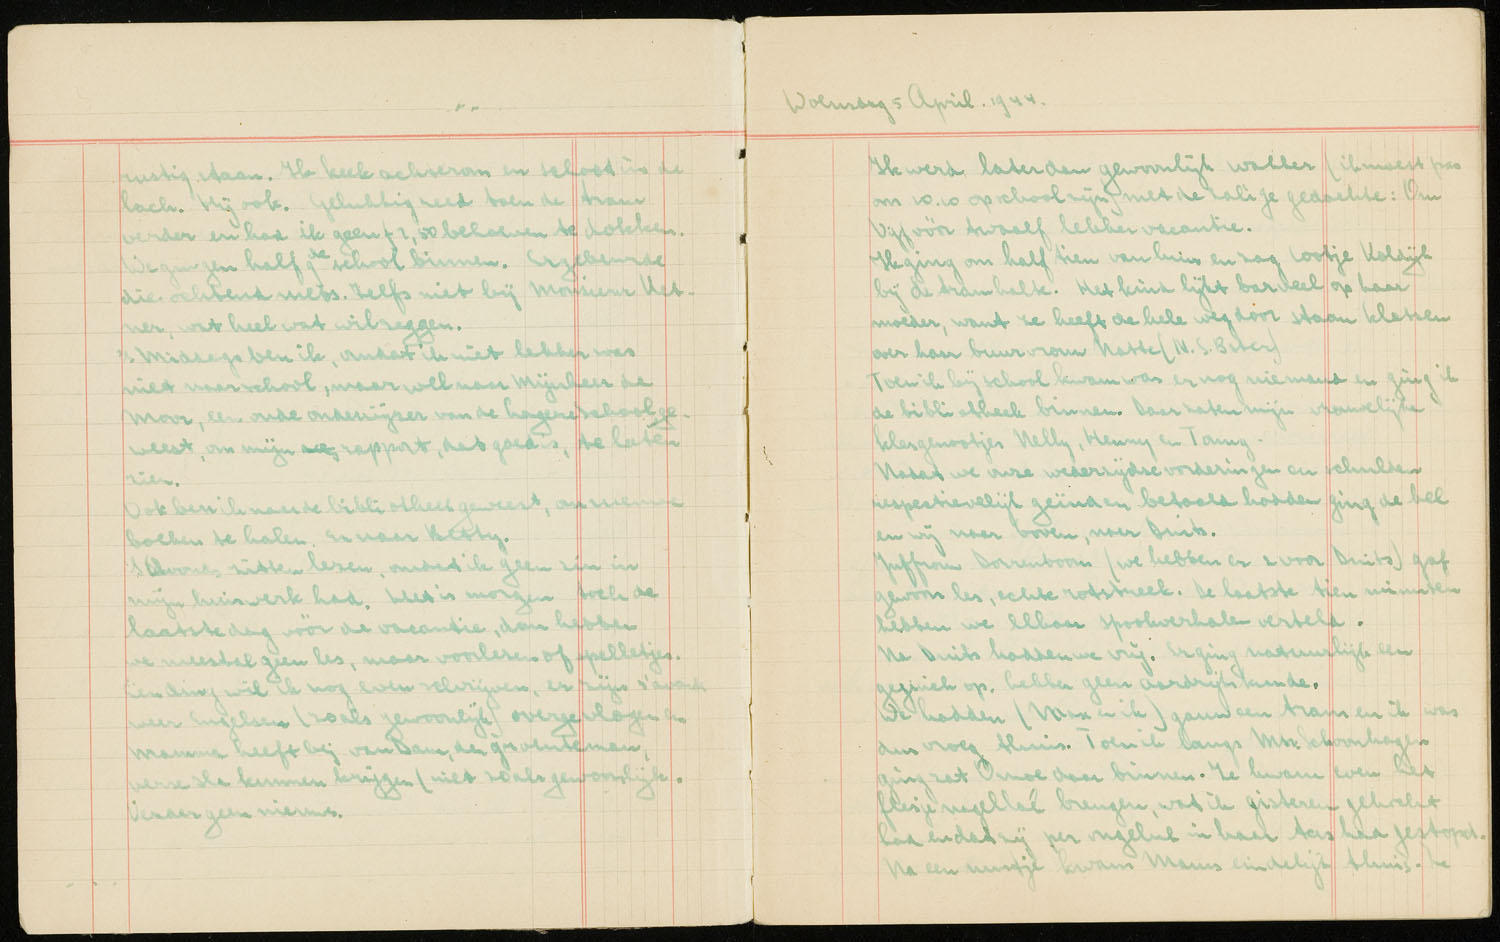 rustig staan. Ik keek achterom en schoot in de
lach. Hij ook. Gelukkig reed toen de tram
verder en had ik geen f 2,50 behoeven te dokken.
We gingen half g de school binnen. Er gebeurde
die ochtend niets. Zelfs niet bij Monsieur Ket-
ner, wat heel wat wil zeggen.
's Middags ben ik, omdat ik niet lekker was
niet naar school, maar wel naar Mijnheer de
Moor, een oude onderwijzer van de lagere school ge-
weest, om mijn rapport, dat goed is, te laten
zien.
Ook ben ik naar de bibliotheek geweest, om nieuwe
boeken te halen. En naar Betty.
's Avonds zitten lezen, omdat ik geen zin in
mijn huiswerk had. Het is morgen toch de
laatste dag vóór de vacantie, dan hebben
we meestal geen les, maar voorlezen of spelletjes.
Eén ding wil ik nog even schrijven, er zijn 's avonds
weer Engelsen (zoals gewoonlijk) overgevlogen en
Mamma heeft bij van Dam, de groenteman,
verse sla kunnen krijgen (niet zoals gewoonlijk.
Verder geen nieuws.
Woensdag 5 April. 1944.
Ik werd later dan gewoonlijk wakker (ik moest pas
om 10.10 op school zijn) met de zalige gedachte: Om
vijf vóór twaalf lekker vacantie.
Ik ging om half tien van huis en zag Lootje Koldijk
bij de tramhalte. Het kind lijkt bar veel op haar
moeder, want ze heeft de hele weg door staan kletsen
over haar buurvrouw (N.S.B.ster)
Toen ik bij school kwam was er nog niemand en ging ik
de bibliotheek binnen. Daar zaten mijn vrouwelijke
klasgenootjes Nelly, Henny en Tonny.
Nadat we onze wederzijdse vorderingen en schulden
respectievelijk geïnd en betaald hadden ging de bel
en wij naar boven, naar Duits.
Juffrouw Dorrenboom (we hebben er 2 voor Duits) gaf
gewoon les, echte rotstreek. De laatste tien minuten
hebben we elkaar spookverhalen verteld.
Na Duits hadden we vrij. Er ging natuurlijk een
gejuich op. Lekker geen aardrijkskunde.
We hadden (Max en ik) gauw een tram en ik was
dus vroeg thuis. Toen ik langs Mw. Schoonhagen
ging zat Omoe daar binnen. Ze kwam even het
flesje nagellak brengen, wat ik gisteren gebracht
had en dat zij per ongeluk in haar tas had gestopt.
Na een uurtje kwam Mams eindelijk thuis. Ze